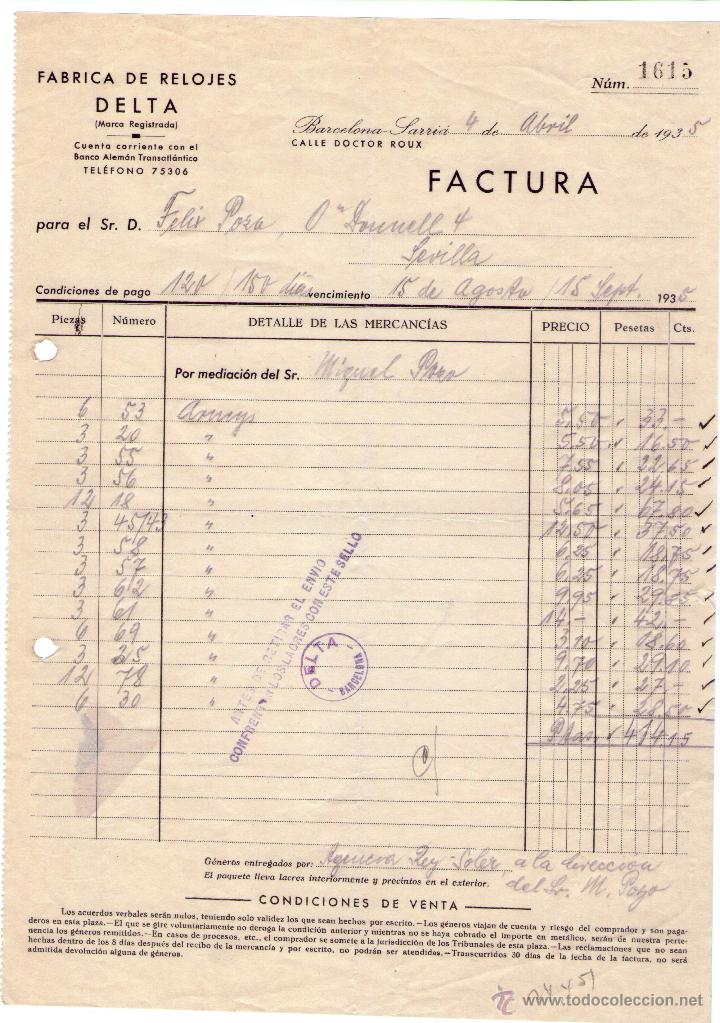 FABRICA DE RELOJES
DELTA
(Marca Registrada)
Cuenta corriente con el
Banco Alemán Transatlántico
TELÉFONO 75306
Núm. 1615
Barcelona-Sarriá 4 de Abril de 1935
CALLE DOCTOR ROUX
FACTURA
para el Sr. D. Felix Pozo, O'Donnell 4
Sevilla
Condiciones de pago 120/150 dias vencimiento 15 de Agosto/15 Sept. 1935
Piezas Número DETALLE DE LAS MERCANCÍAS PRECIO Pesetas Cts.
Por mediación del Sr. Miguel Pozo
6 53 5,50 33,-
3 20 " 5,50 16,50
3 55 " 7,55 22,65
3 56 " 8,05 24,15
12 18 " 5,65 67,80
3 45/43 " 12,50 37,50
3 58 " 6,25 18,75
3 57 " 6,25 18,75
3 62 " 9,95 29,85
3 61 " 14,- 42,-
6 69 " 3,10 18,60
3 315 " 9,70 29,10
12 78 " 2,25 27,-
6 30 " 4,75 28,50
Ptas. 414,15
ANTES DE RETIRAR EL ENVIO
CONFRENTE LOS LACRES CON ESTE SELLO
DELTA
BARCELONA
Géneros entregados por: Agencia Rey-Soler, a la dirección
El paquete lleva lacres interiormente y precintos en el exterior. del Sr. M. Pozo
CONDICIONES DE VENTA
Los acuerdos verbales serán nulos, teniendo solo validez los que sean hechos por escrito.—Los géneros viajan de cuenta y riesgo del comprador y son paga-
deros en esta plaza.—El que se gire voluntariamente no deroga la condición anterior y mientras no se haya cobrado el importe en metálico, serán de nuestra perte-
nencia los géneros remitidos.—En casos de procesos, etc., el comprador se somete a la jurisdicción de los Tribunales de esta plaza.—Las reclamaciones que no sean
hechas dentro de los 8 días después del recibo de la mercancía y por escrito, no podrán ser atendidas.—Transcurridos 30 días de la fecha de la factura, no será
admitida devolución alguna de géneros.
www.todocoleccion.net